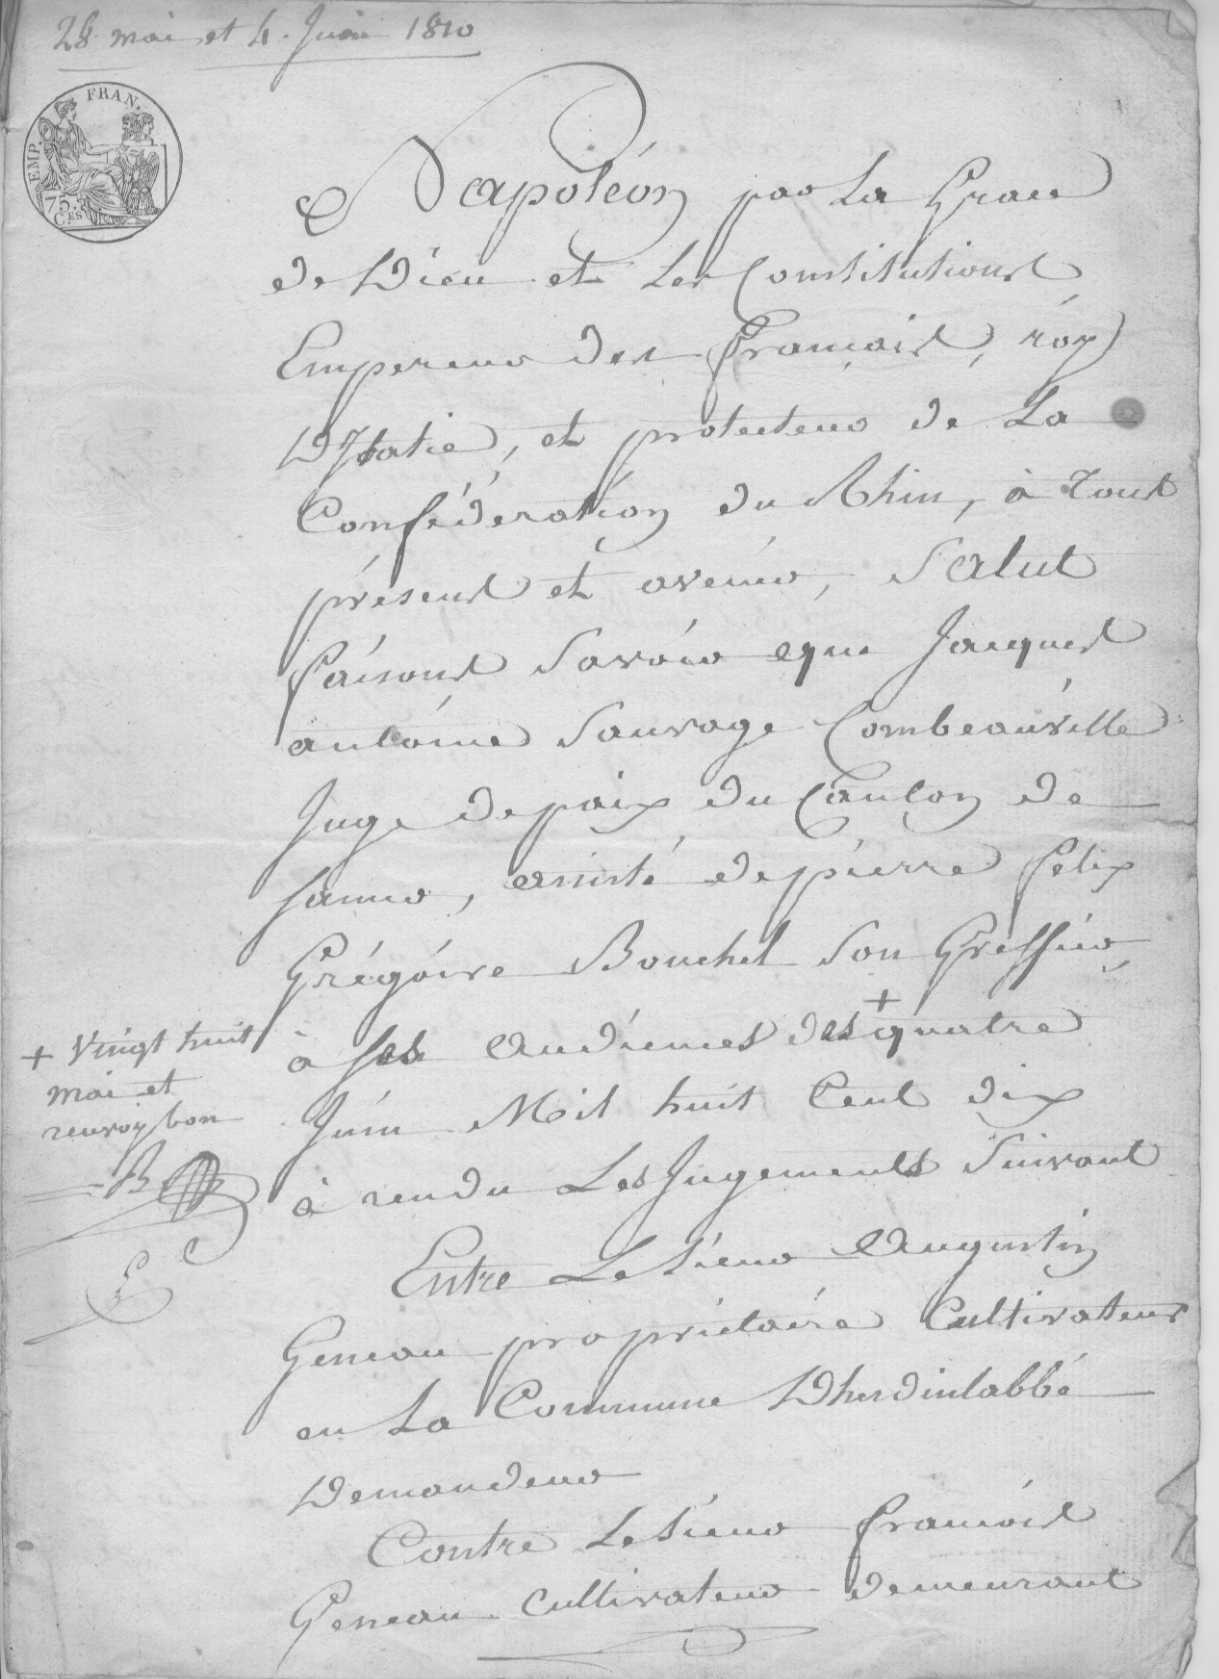 28 mai et 4. Juin 1810
EMP. FRAN.
75.
C.ES
Napoléon par La Grace
de Dieu et Les Constitutions
Empereur des francais, roy
D'Italie, et protecteur de La
Conféderation du Rhin, à Tous
présens et avenir, Salut
faisons Savoir que Jacques
antoine Sauvage Combeauville
Juge de paix du Canton de
Samer, assisté de pierre felix
Grégoire Bouchel Son Greffier
à ses audiences des + quatre
+ Vingt huit
mai et
renvoy bon
Juin Mil huit Cent dix
à rendu Les Jugements Suivant
Entre Le Sieur Augustin
Geneau proprietaire Cultivateur
en La Commune D'hesdinlabbé
Demandeur
Contre Le Sieur francois
Geneau Cultivateur demeurant